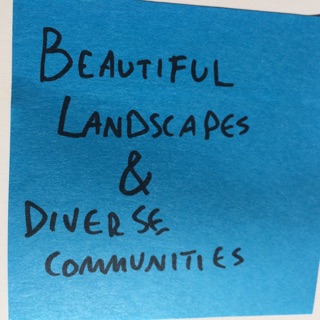 BEAUTIFUL
LANDSCAPES
&
DIVERSE
COMMUNITIES